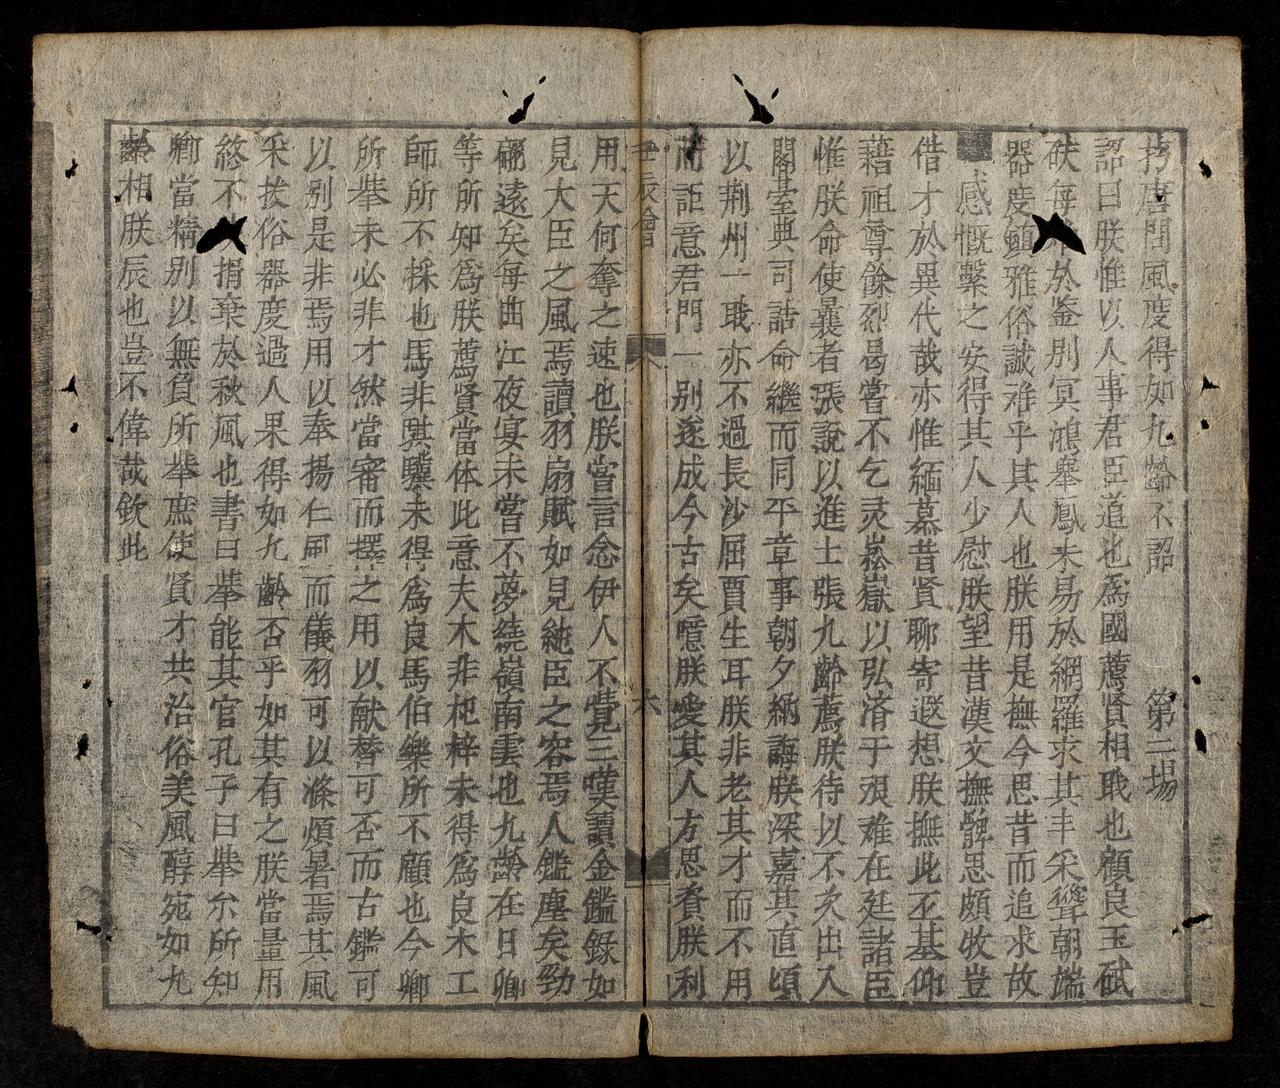 擬唐問風度得如九齡不詔　第二場
詔曰朕惟以人事君臣道也為國薦賢相職也顧良玉碔
砆每於鉴别冥鴻舉鳳未易於網羅求其丰采聳朝端
器度鎮雅俗誠难乎其人也朕用是撫今思昔而追求故
感慨繫之安得其人少慰朕望昔漢文撫髀思頗牧豈
借才於異代哉亦惟緬慕昔賢聊寄遐想朕撫此丕基仰
藉祖尊餘烈曷嘗不乞灵崧嶽以弘济于艰难在廷諸臣
惟朕命使曩者張說以進士張九齡薦朕待以不次出入
閣臺典司誥命繼而同平章事朝夕納誨朕深嘉其直頃
以荆州一戢亦不過長沙屈賈生耳朕非老其才而不用
而詎意君門一别遂成今古矣噫朕愛其人方思賚朕利
壬辰會　六
用天何奪之速也朕嘗言念伊人不覺三嘆讀金鑑錄如
見大臣之風焉讀羽扇賦如見純臣之容焉人鑑塵矣勁
翮遠矣每曲江夜宴未嘗不夢繞嶺南雲也九齡在日卿
等所知為朕薦賢當体此意夫木非杞梓未得為良木工
師所不採也馬非騏驥未得為良馬伯樂所不顧也今卿
所举未必非才然當審而擇之用以献替可否而古鑑可
以别是非焉用以奉揚仁風而儀羽可以滌煩暑焉其風
采拔俗器度過人果得如九齡否乎如其有之朕當量用
終不捐棄於秋風也書曰举能其官孔子曰举尔所知
卿當精别以無負所举庶使賢才共治俗美風醇宛如九
齡相朕辰也豈不偉哉欽此